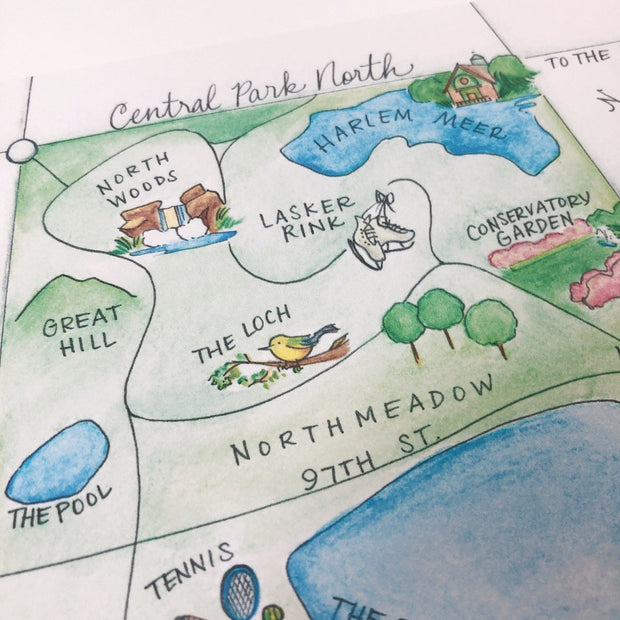 Central Park North
TO THE
HARLEM MEER
NORTH
WOODS
LASKER
RINK
CONSERVATORY
GARDEN
GREAT
HILL
THE LOCH
NORTH MEADOW
97TH ST.
THE POOL
TENNIS
THE